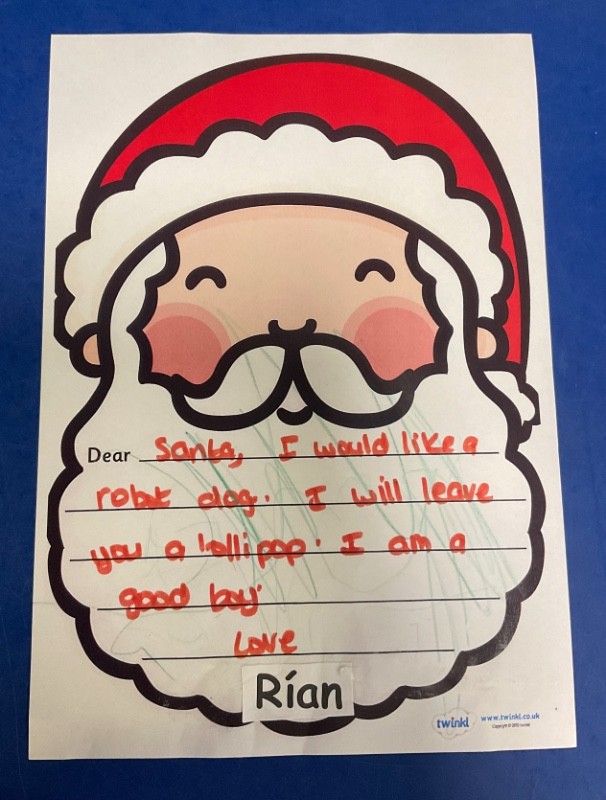 Dear Santa, I would like a
robot dog. I will leave
you a lollipop. I am a
good boy.
Love
Rían
twinkl
www.twinkl.co.uk